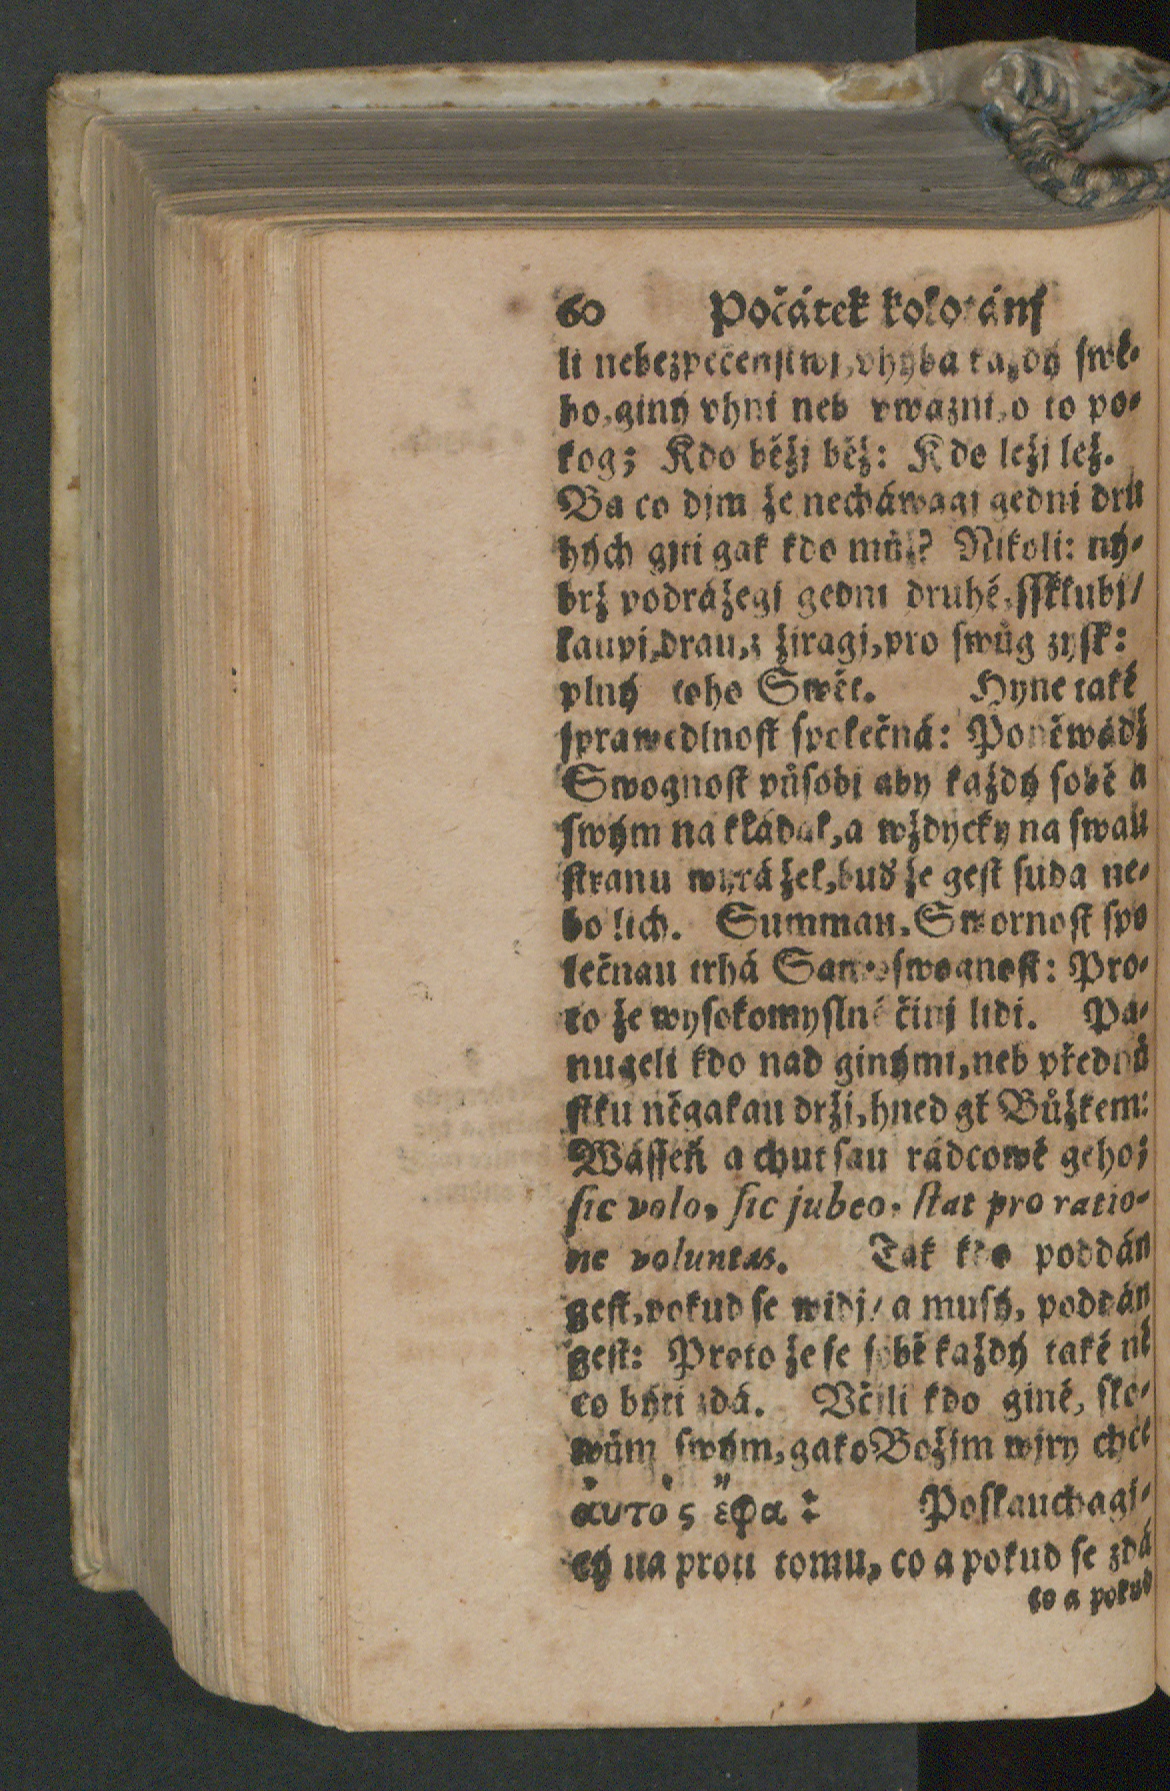 60 Počátek kolotánj
li nebezpečenstwj, vhýba každý swé-
ho, giný vhni neb vwázni, o to po-
kog; Kdo běžj běž: Kdo ležj lež.
Ba co djm že necháwagj gedni dru
hých gjti gak kdo můž? Nikoli: ný-
brž podrážegj gedni druhé, sskkubj/
laupj, drau, z žiragj, pro swůg zysk:
plný toho Swět. Hyne také
sprawedlnost společná: Poněwádž
Swognost působj aby každý sobě a
swým na kládal, a wždycky na swau
stranu wyrážel, buď že gest suda ne-
bo lich. Summau. Swornost spo
lečnau trhá Samoswognost: Pro-
to že wysokomyslné činj lidi. Pa-
nugeli kdo nad ginými, neb přednů
stku něgakau držj, hned gest Bůžkem:
Wásseň a chut sau rádcowé geho;
sic volo, sic jubeo, stat pro ratio-
ne voluntas. Tak kdo poddán
gest, pokud se widj/ a musý, poddán
gest: Proto že se sobě každý také ně
co býti zdá. Včjli kdo giné, slo-
wům swým, gako Božjm wjry chce
ἀυτὸς ἔφα: Poslauchagj-
cý na proti tomu, co a pokud se zdá
co a pokud